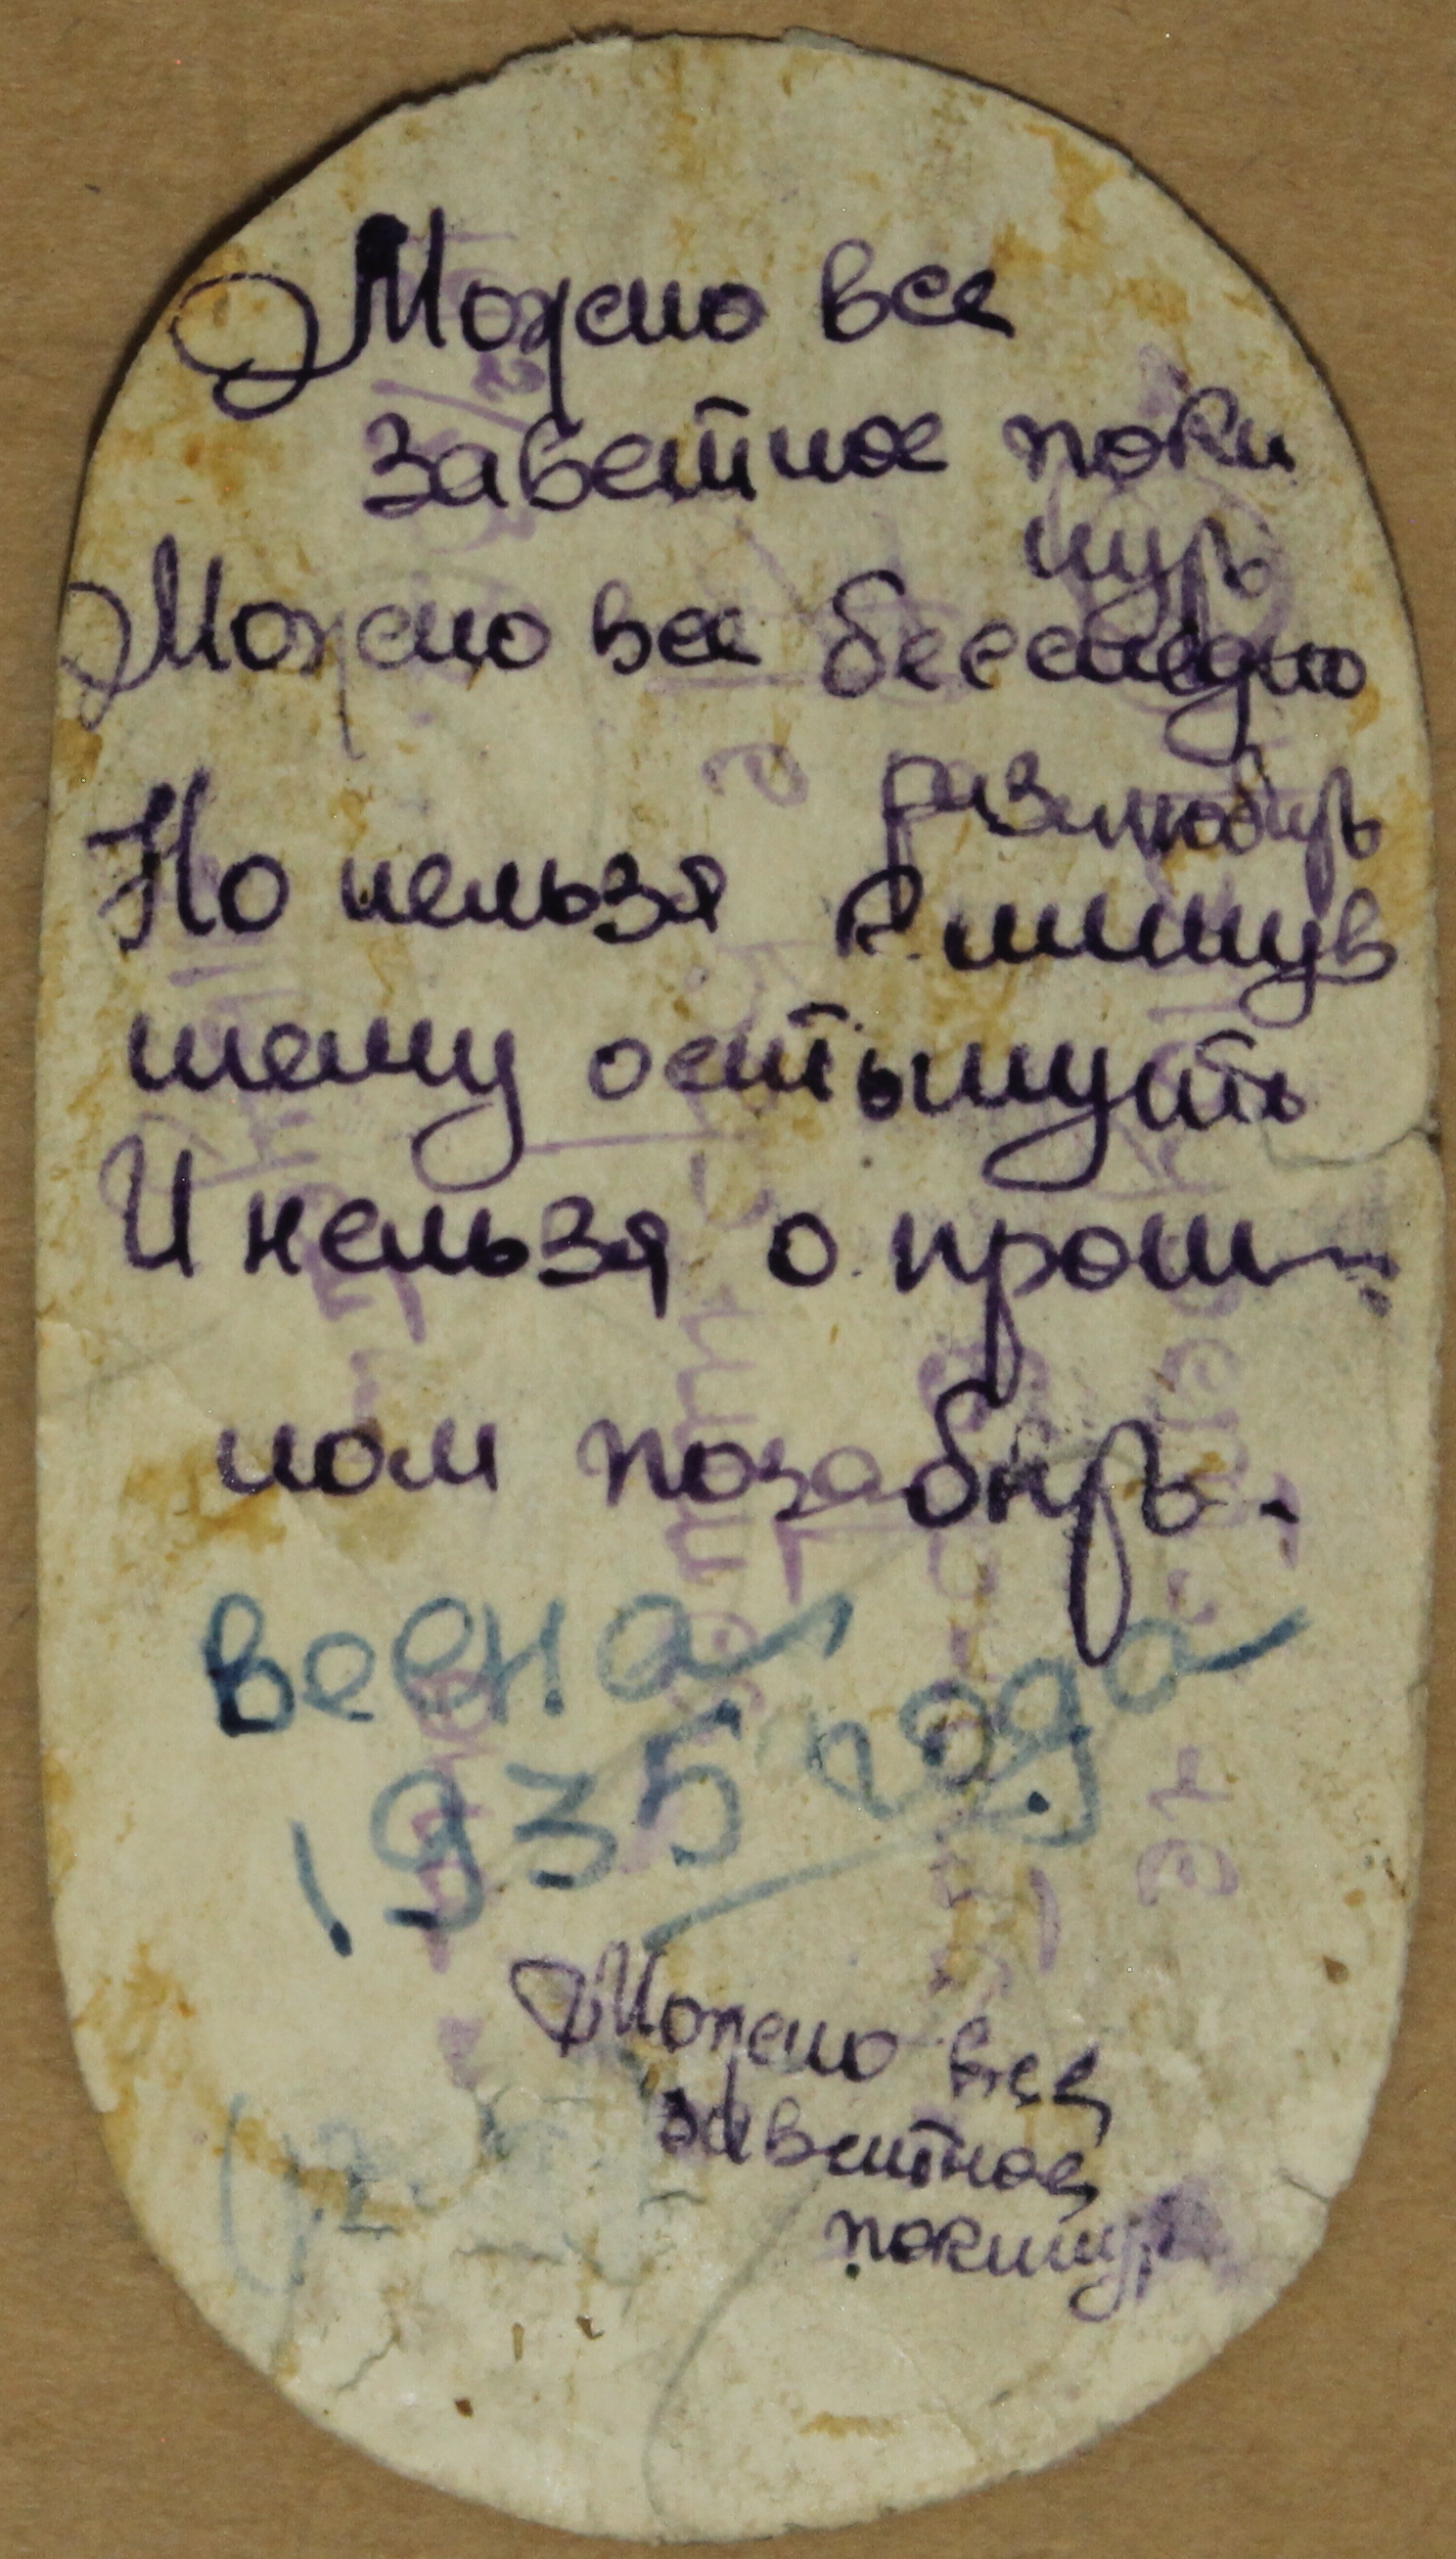 Можно все
заветное поки
нуть
Можно все бесследно
разлюбить
Но нельзя к минув
шему остынуть
И нельзя о прош-
лом позабыть.
весна
1935 года
Можно все
заветное
покинуть